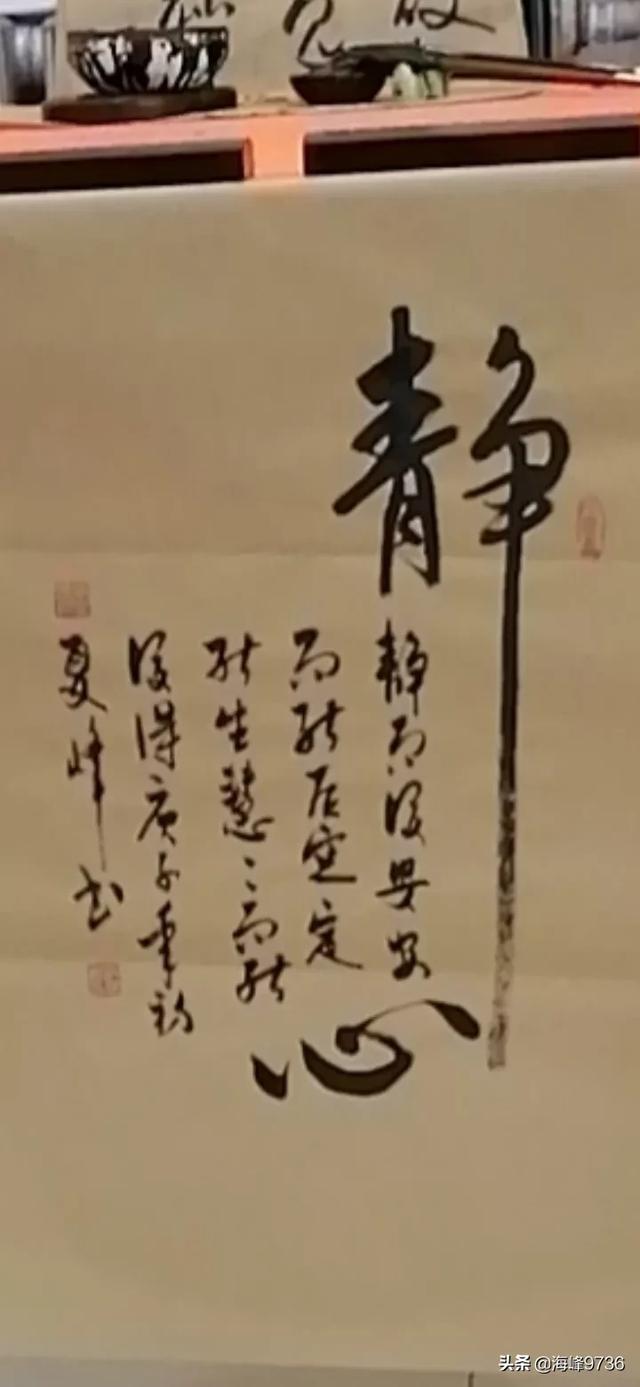 静心
静而後安安
而能后定定
能生慧々而能
後得庚子
夏峰书
头条 @海峰9736